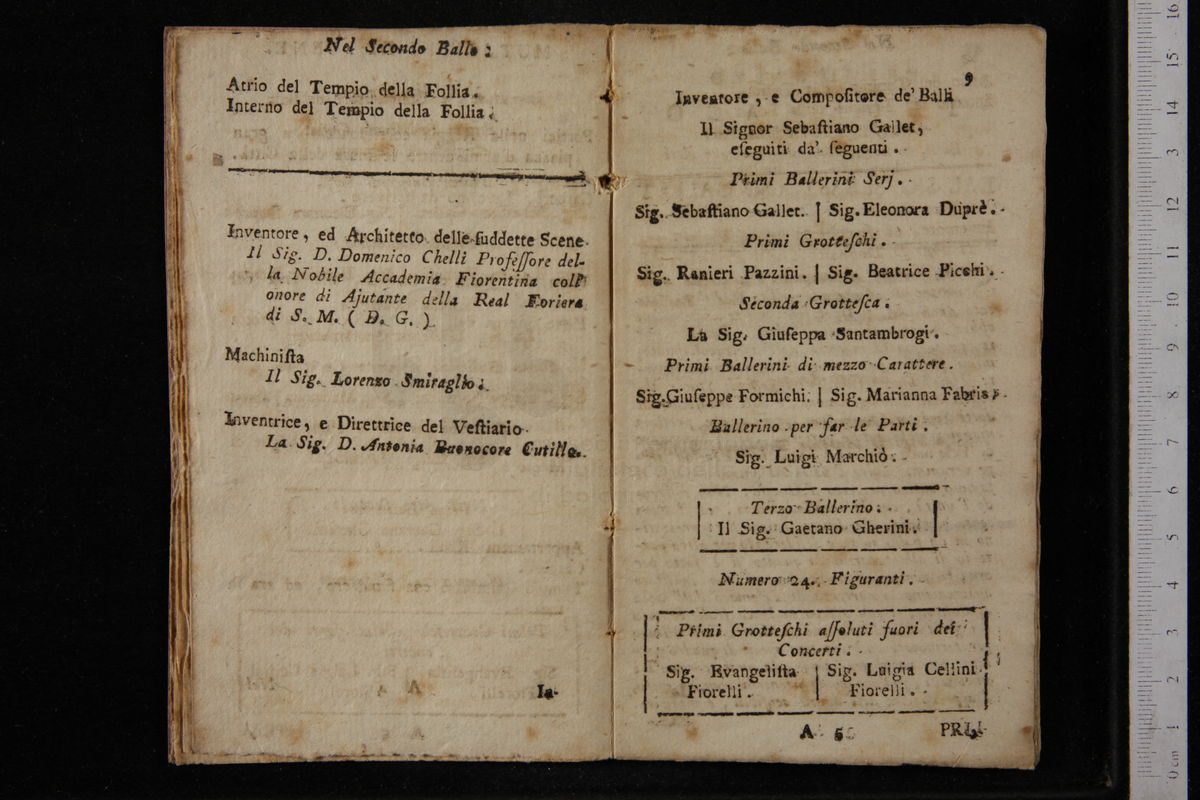 Nel Secondo Ballo :
Atrio del Tempio della Follia.
Interno del Tempio della Follia.
Inventore, ed Architetto delle ſuddette Scene
Il Sig. D. Domenico Chelli Profeſſore del-
la Nobile Accademia Fiorentina coll'
onore di Ajutante della Real Foriera
di S. M. ( D. G. )
Machiniſta
Il Sig. Lorenzo Smiraglio.
Inventrice, e Direttrice del Veſtiario
La Sig. D. Antonia Buonocore Cutillo.
In-
9
Inventore, e Compoſitore de' Balli
Il Signor Sebaſtiano Gallet,
eſeguiti da' ſeguenti.
Primi Ballerini Serj.
Sig. Sebaſtiano Gallet. | Sig. Eleonora Duprè.
Primi Grotteſchi.
Sig. Ranieri Pazzini. | Sig. Beatrice Picchi.
Seconda Grotteſca.
La Sig. Giuſeppa Santambrogi.
Primi Ballerini di mezzo Carattere.
Sig. Giuſeppe Formichi. | Sig. Marianna Fabris.
Ballerino per far le Parti.
Sig. Luigi Marchiò.
Terzo Ballerino.
Il Sig. Gaetano Gherini.
Numero 24. Figuranti.
Primi Grotteſchi aſſoluti fuori dei
Concerti.
Sig. Evangeliſta | Sig. Luigia Cellini
Fiorelli. | Fiorelli.
A 5 PRI-
0 cm 1 2 3 4 5 6 7 8 9 10 11 12 13 14 15 16